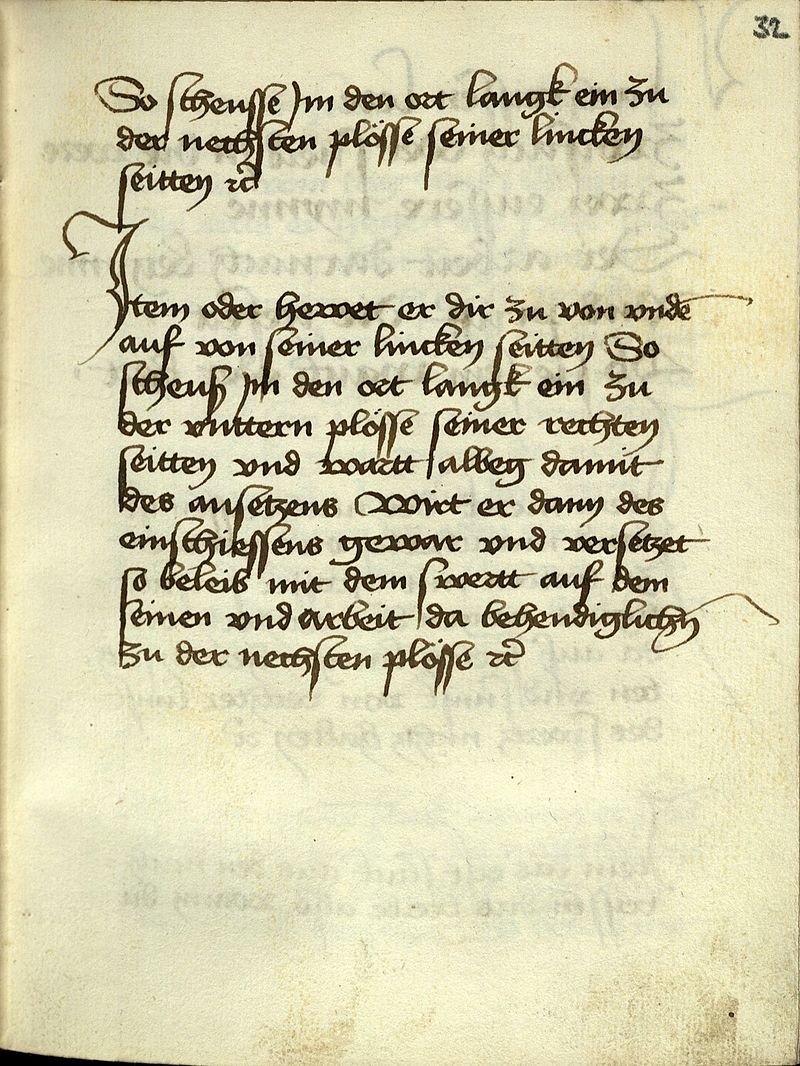 32
So scheusse Jm den ort langk ein zu
der nechsten plösse seiner lincken
seitten ⁊c̃
Item oder hewet er dir zu von vndē
auf von seiner lincken seitten So
scheuß Jm den ort langk ein zu
der vnttern plösse seiner rechten
seitten vnd wartt albeg damit
des ansetzens Wirt er dann des
einschiessens gewar vnd versetzet
so beleib mit dem swertt auf dem
seinen vnd arbeit da behendiglichñ
zu der nechsten plösse ⁊c̃